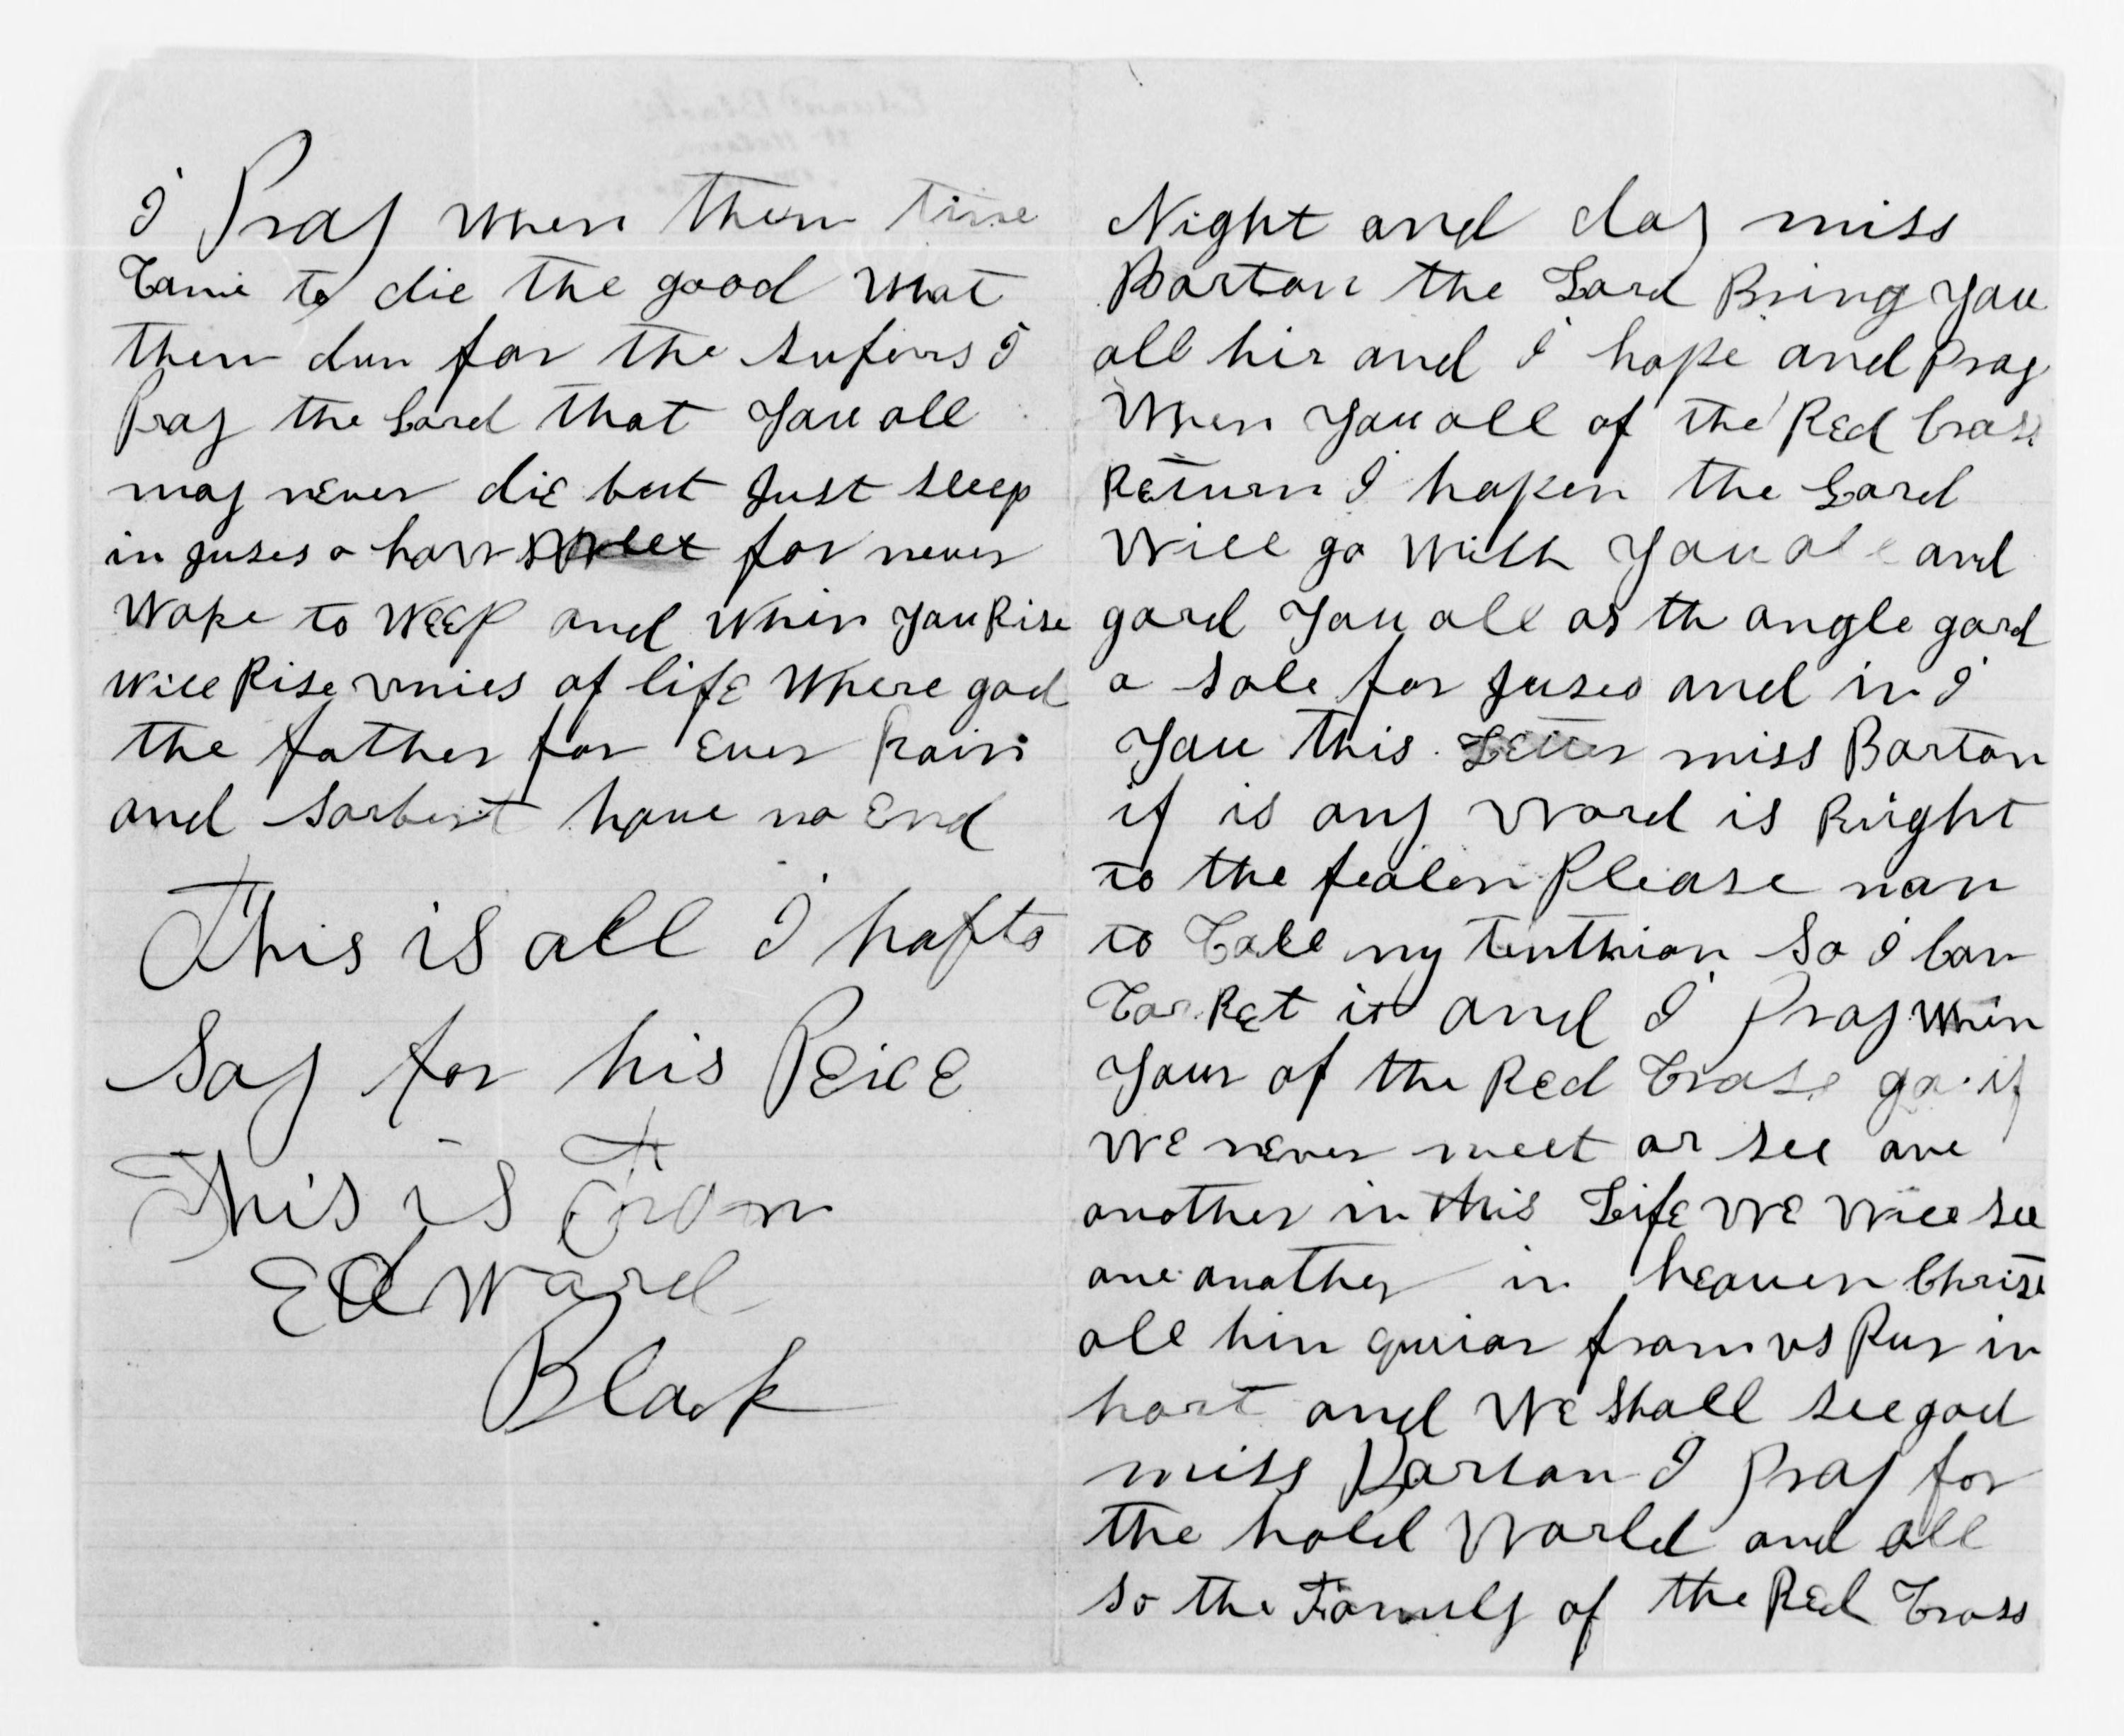 Night and day miss
Barton the Lord Bring you
all hir and I hope and Pray
When you all of the Red Cross
Return I hopen the Lord
Will go With you all and
gard you all as th angle gard
a sole for Juses and in I
you this Letter miss Barton
if is any Word is Right
to the Please nan
to Call my tenthion So I Can
Car Ret it and I Pray Whin
your of the Red Cross go if
WE never meet or see one
another in this Life WE Will see
one another in heaven Christ
all hin from us Pur in
hart and WE Shall see god
miss Barton I Pray for
the hold World and all
so the Famuly of the Red Cross
I Pray When them time
Came to die the good What
them dun for the sufirs I
Pray the Lord that you all
may never die but Just sleep
in Juses a harr sweet for never
Wake to WEEP and Whin you Rise
Will Rise of life Where god
the father for Ever Rain
and Sarbert have no End
This is all I hafto
Say for his PEICE
This is From
Edward
Black